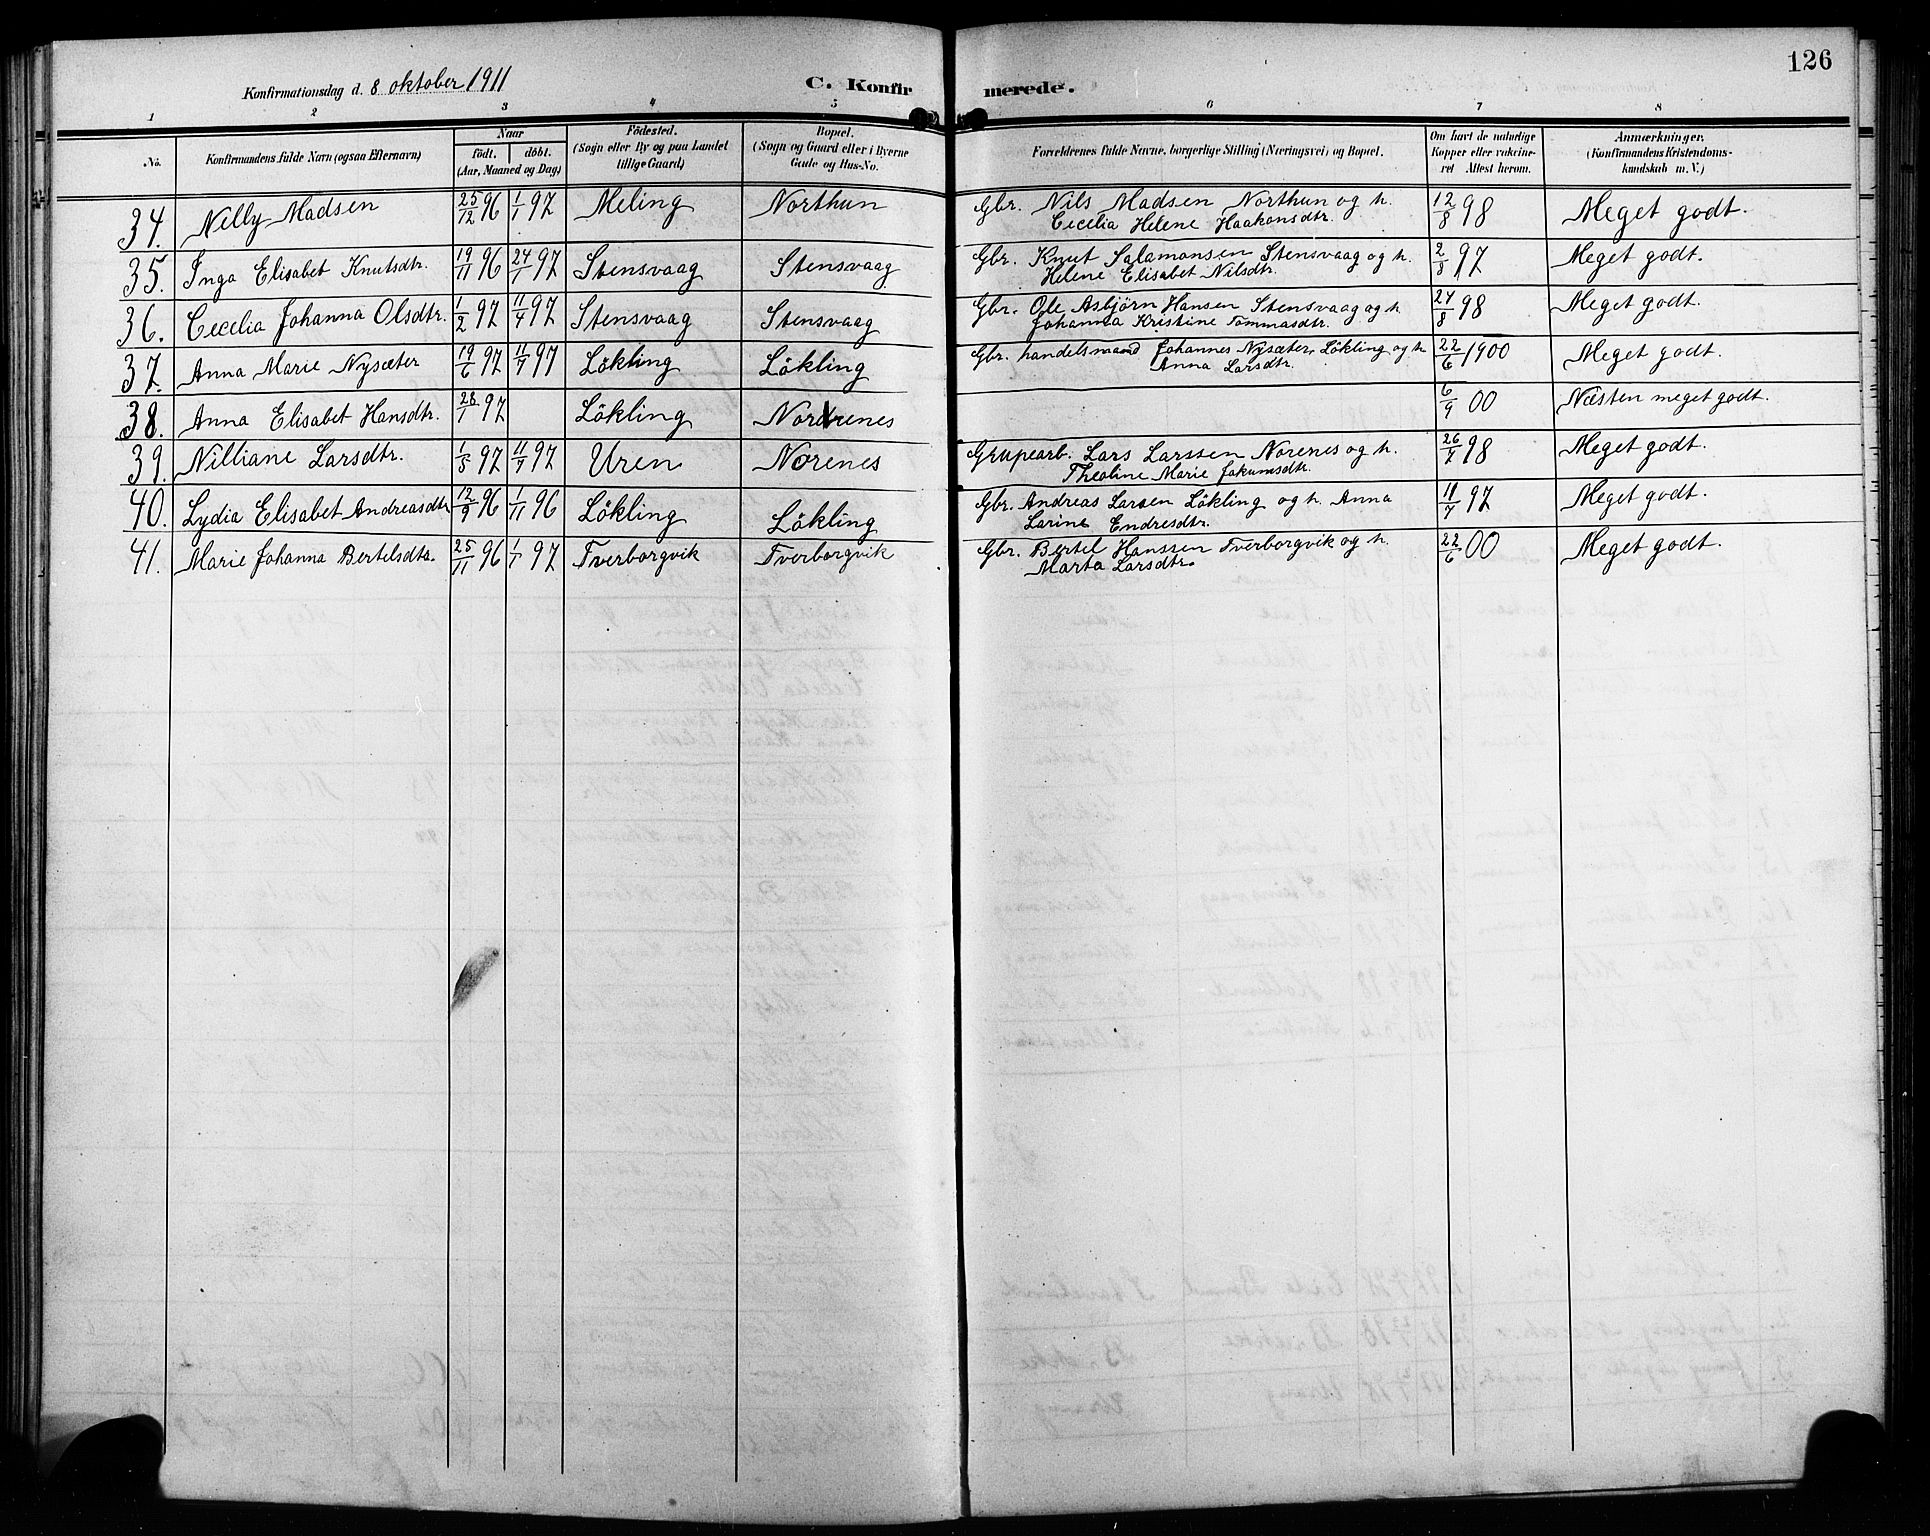 126
Konfirmationsdag d. 8 oktober 1911 C. Konfirmerede.
1 2 3 4 5 6 7 8
No. Konfirmandens fulde Navn (ogsaa Efternavn) Naar født. døbt. (Aar, Maaned og Dag) Fødested. (Sogn eller By og paa Landet tillige Gaard) Bopæl. (Sogn og Gaard eller i Byerne Gade og Hus-No. Forældrenes fulde Navne, borgerlige Stilling (Næringsvei) og Bopæl. Om havt de naturlige Kopper eller vakcineret Attest herom. Anmærkninger. (Konfirmandens Kristendomskundskab m. V.)
34. Nelly Madsen 25/12 96 1/1 97 Meling Northun Gbr. Nils Madsen Northun og h. 12/8 98 Meget godt.
Cecelia Helene Haakonsdtr.
35. Inga Elisabet Knutsdtr. 19/11 96 24/1 97 Stensvaag Stensvaag Gbr. Knut Salamonsen Stensvaag og h. 2/8 97 Meget godt.
Helene Elisabet Nilsdtr.
36. Cecelia Johanna Olsdtr. 1/2 97 11/4 97 Stensvaag Stensvaag Gbr. Ole Asbjörn Hansen Stensvaag og h. 24/8 98 Meget godt.
Johanna Kristine Tommasdtr.
37. Anna Marie Nysæter 19/6 97 11/7 97 Lökling Lökling Gbr. handelsmand Johannes Nysæter, Lökling og h 22/6 1900 Meget godt.
Anna Larsdtr.
38. Anna Elisabet Hansdtr. 28/1 97 Lökling Nordrenes 6/9 00 Næsten meget godt.
39. Nilliane Larsdtr. 1/5 97 11/7 97 Uren Norenes Grupearb. Lars Larssen Norenes og h. 26/7 98 Meget godt.
Thealine Marie Jakumsdtr.
40. Lydia Elisabet Andreasdtr 12/9 96 1/11 96 Lökling Lökling Gbr. Andreas Larsen Lökling og h. Anna 11/7 97 Meget godt.
Larine Endresdtr.
41. Marie Johanna Bertelsdtr. 25/11 96 1/1 97 Tverborgvik Tverborgvik Gbr. Bertel Hanssen Tverborgvik og h. 22/6 00 Meget godt.
Marta Larsdtr.